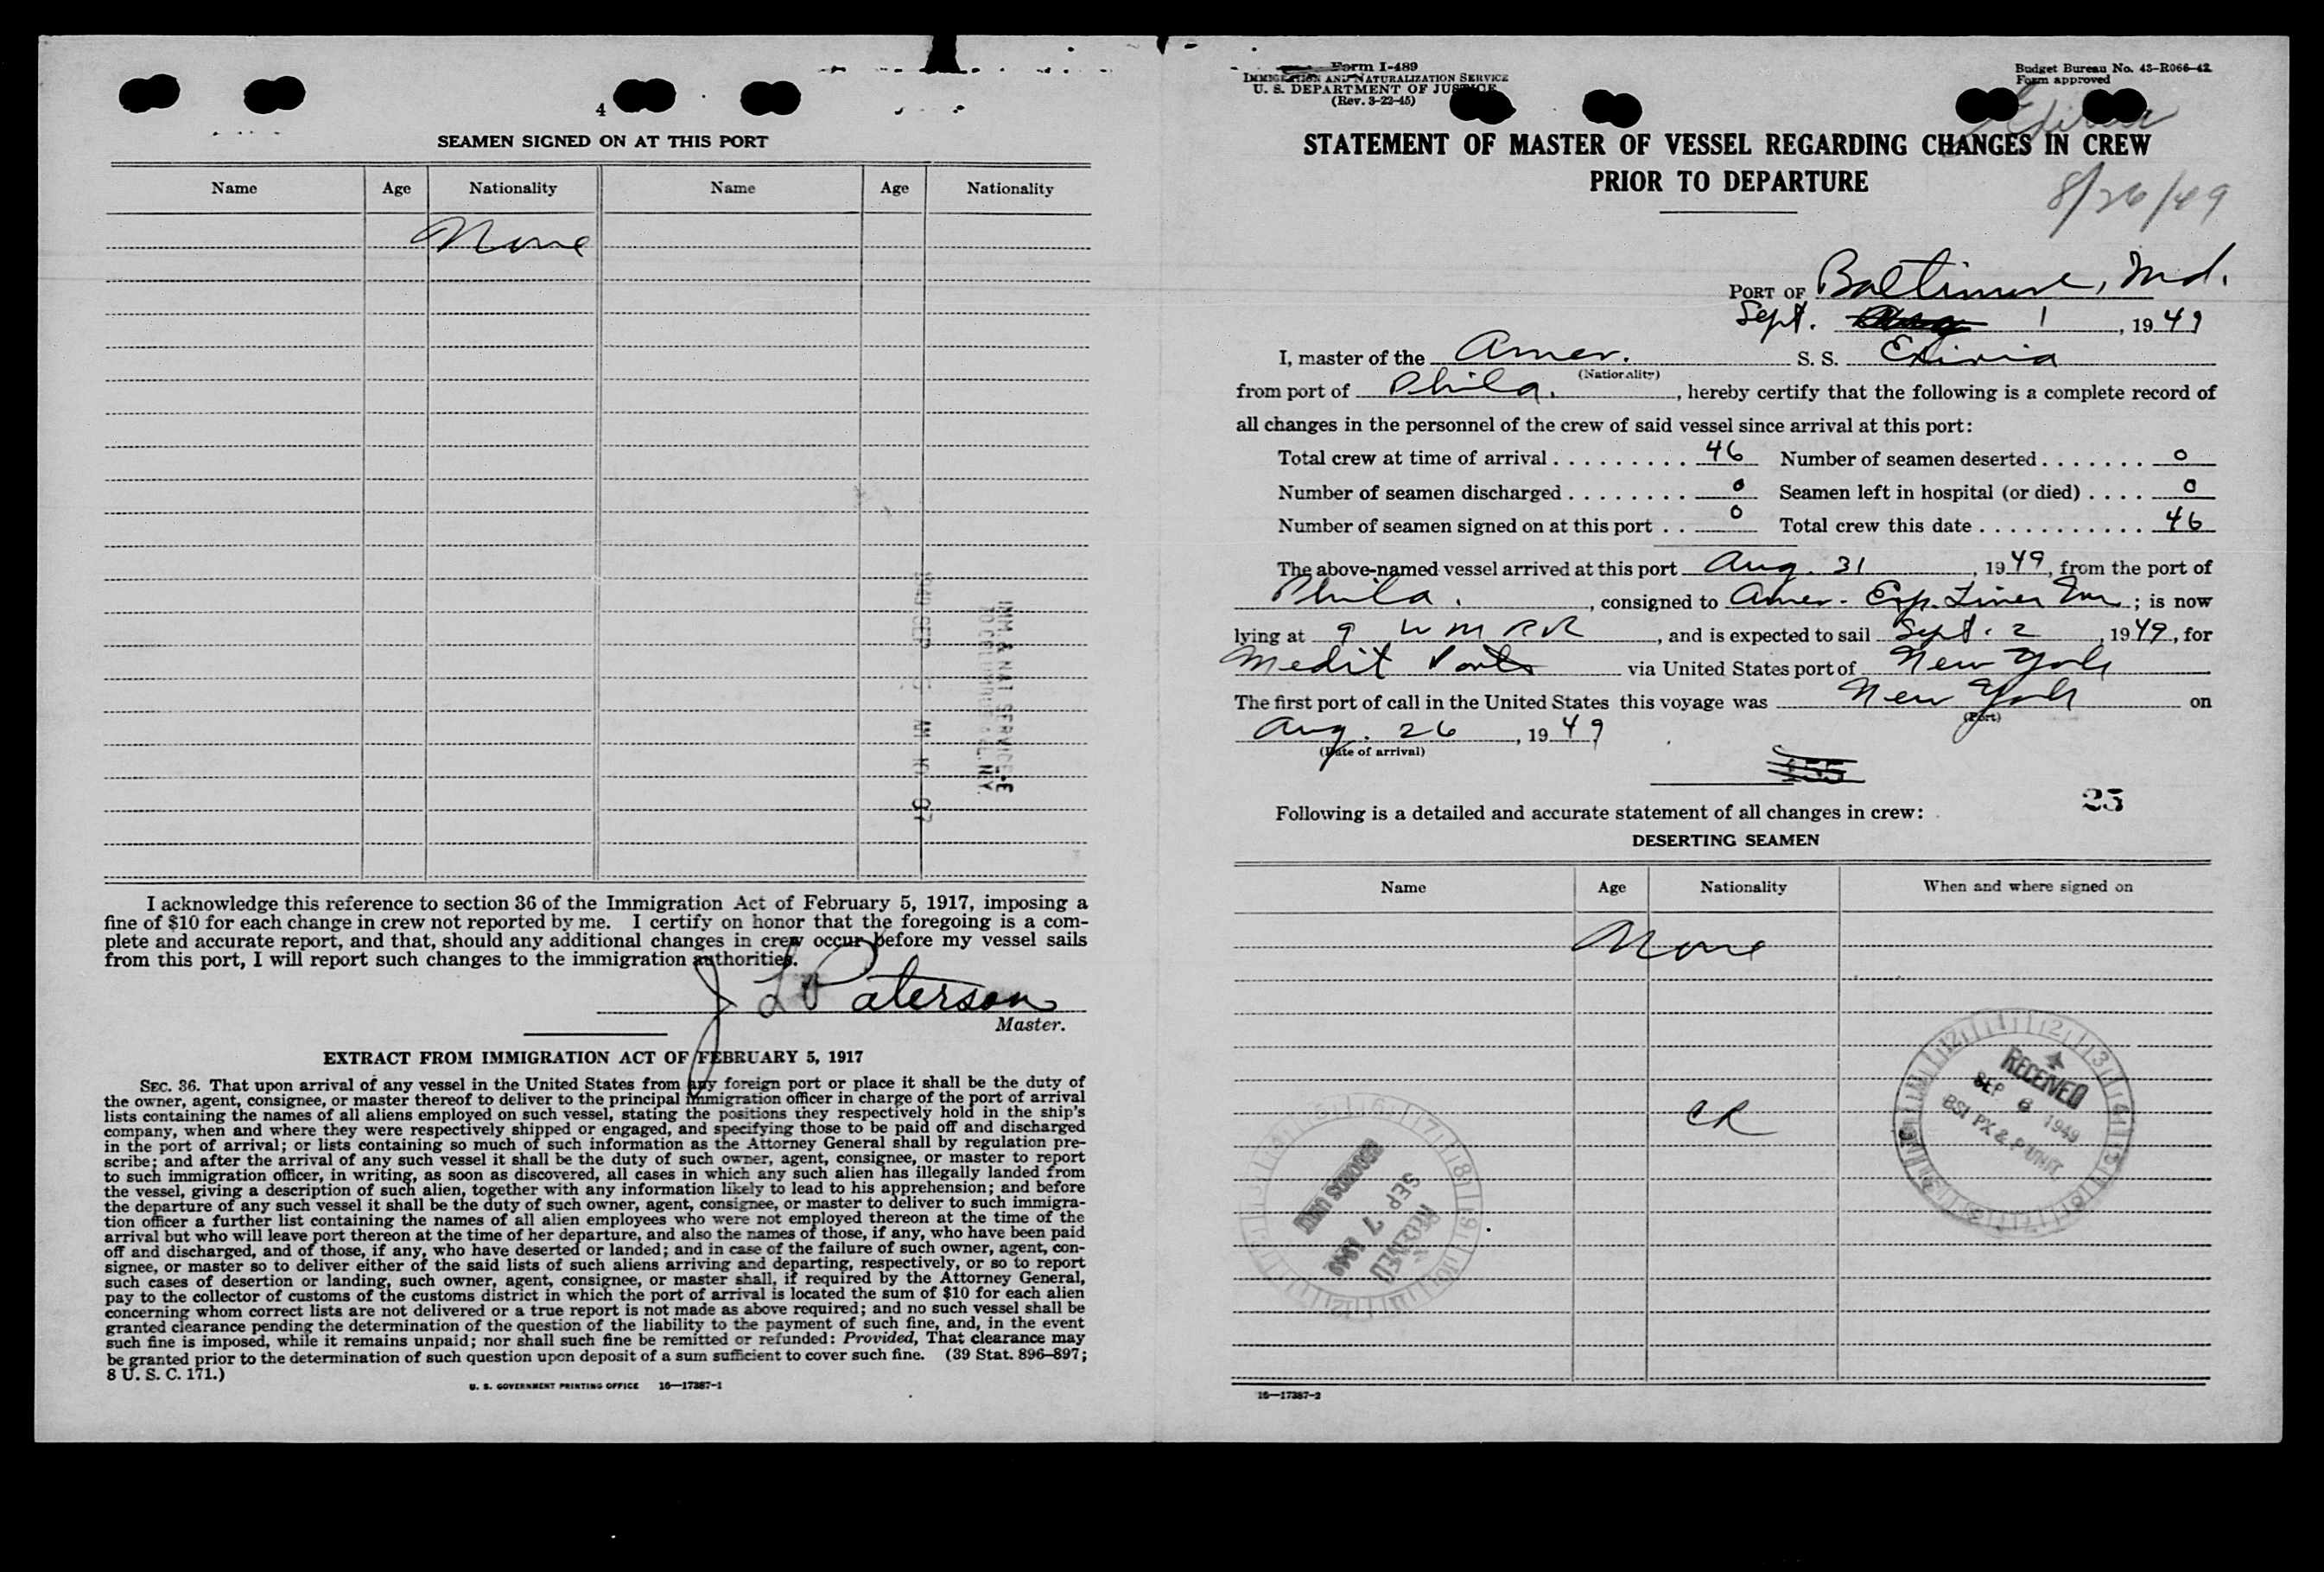 4
SEAMEN SIGNED ON AT THIS PORT
Name Age Nationality Name Age Nationality
None
I acknowledge this reference to section 36 of the Immigration Act of February 5, 1917, imposing a
fine of $10 for each change in crew not reported by me. I certify on honor that the foregoing is a com-
plete and accurate report, and that, should any additional changes in crew occur before my vessel sails
from this port, I will report such changes to the immigration authorities.
J L Paterson
Master.
EXTRACT FROM IMMIGRATION ACT OF FEBRUARY 5, 1917
SEC. 36. That upon arrival of any vessel in the United States from any foreign port or place it shall be the duty of
the owner, agent, consignee, or master thereof to deliver to the principal immigration officer in charge of the port of arrival
lists containing the names of all aliens employed on such vessel, stating the positions they respectively hold in the ship's
company, when and where they were respectively shipped or engaged, and specifying those to be paid off and discharged
in the port of arrival; or lists containing so much of such information as the Attorney General shall by regulation pre-
scribe; and after the arrival of any such vessel it shall be the duty of such owner, agent, consignee, or master to report
to such immigration officer, in writing, as soon as discovered, all cases in which any such alien has illegally landed from
the vessel, giving a description of such alien, together with any information likely to lead to his apprehension; and before
the departure of any such vessel it shall be the duty of such owner, agent, consignee, or master to deliver to such immigra-
tion officer a further list containing the names of all alien employees who were not employed thereon at the time of the
arrival but who will leave port thereon at the time of her departure, and also the names of those, if any, who have been paid
off and discharged, and of those, if any, who have deserted or landed; and in case of the failure of such owner, agent, con-
signee, or master so to deliver either of the said lists of such aliens arriving and departing, respectively, or so to report
such cases of desertion or landing, such owner, agent, consignee, or master shall, if required by the Attorney General,
pay to the collector of customs of the customs district in which the port of arrival is located the sum of $10 for each alien
concerning whom correct lists are not delivered or a true report is not made as above required; and no such vessel shall be
granted clearance pending the determination of the question of the liability to the payment of such fine, and, in the event
such fine is imposed, while it remains unpaid; nor shall such fine be remitted or refunded: Provided, That clearance may
be granted prior to the determination of such question upon deposit of a sum sufficient to cover such fine. (39 Stat. 896–897;
8 U. S. C. 171.)
U. S. GOVERNMENT PRINTING OFFICE 16—17387-1
Form I-489
IMMIGRATION AND NATURALIZATION SERVICE
U. S. DEPARTMENT OF JUSTICE
(Rev. 3-22-45)
Budget Bureau No. 43-R066-42
Form approved
STATEMENT OF MASTER OF VESSEL REGARDING CHANGES IN CREW
PRIOR TO DEPARTURE
8/26/49
PORT OF Baltimore, Md.
Sept. 1, 1949
I, master of the Amer. S. S. Exiria
(Nationality)
from port of Phila., hereby certify that the following is a complete record of
all changes in the personnel of the crew of said vessel since arrival at this port:
Total crew at time of arrival 46 Number of seamen deserted 0
Number of seamen discharged 0 Seamen left in hospital (or died) 0
Number of seamen signed on at this port 0 Total crew this date 46
The above-named vessel arrived at this port Aug. 31, 1949, from the port of
Phila., consigned to Amer. Exp. Lines Inc; is now
lying at 9 W M R R, and is expected to sail Sept. 2, 1949, for
Medit Ports via United States port of New York
The first port of call in the United States this voyage was New York on
(Port)
Aug. 26, 1949
(Date of arrival)
155
25
Following is a detailed and accurate statement of all changes in crew:
DESERTING SEAMEN
Name Age Nationality When and where signed on
None
CR
RECEIVED
SEP 6 1949
BSI PX & P UNIT
RECEIVED
SEP 7 1949
16—17387-2